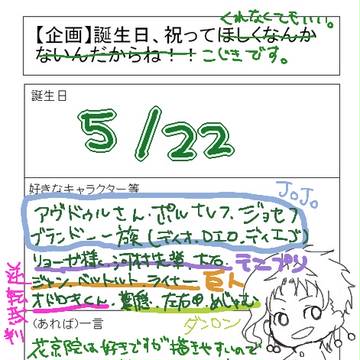 くれなくてもいい。
【企画】誕生日、祝ってほしくなんか
ないんだからね！！こじきです。
誕生日
5/22
好きなキャラクター等
JOJO
アヴドゥルさん・ポルナレフ・ジョセフ
ブランドー一族(ディオ、DIO、ディエゴ)
リョーガ様、河村先輩、大石 テニプリ
ジャン、ベルトルト、ライナー 巨人
逆転裁判
オドロキくん、葉隠、左右田、めじゃむ
ダンロン
(あれば)一言
花京院は好きですが描きやすいので